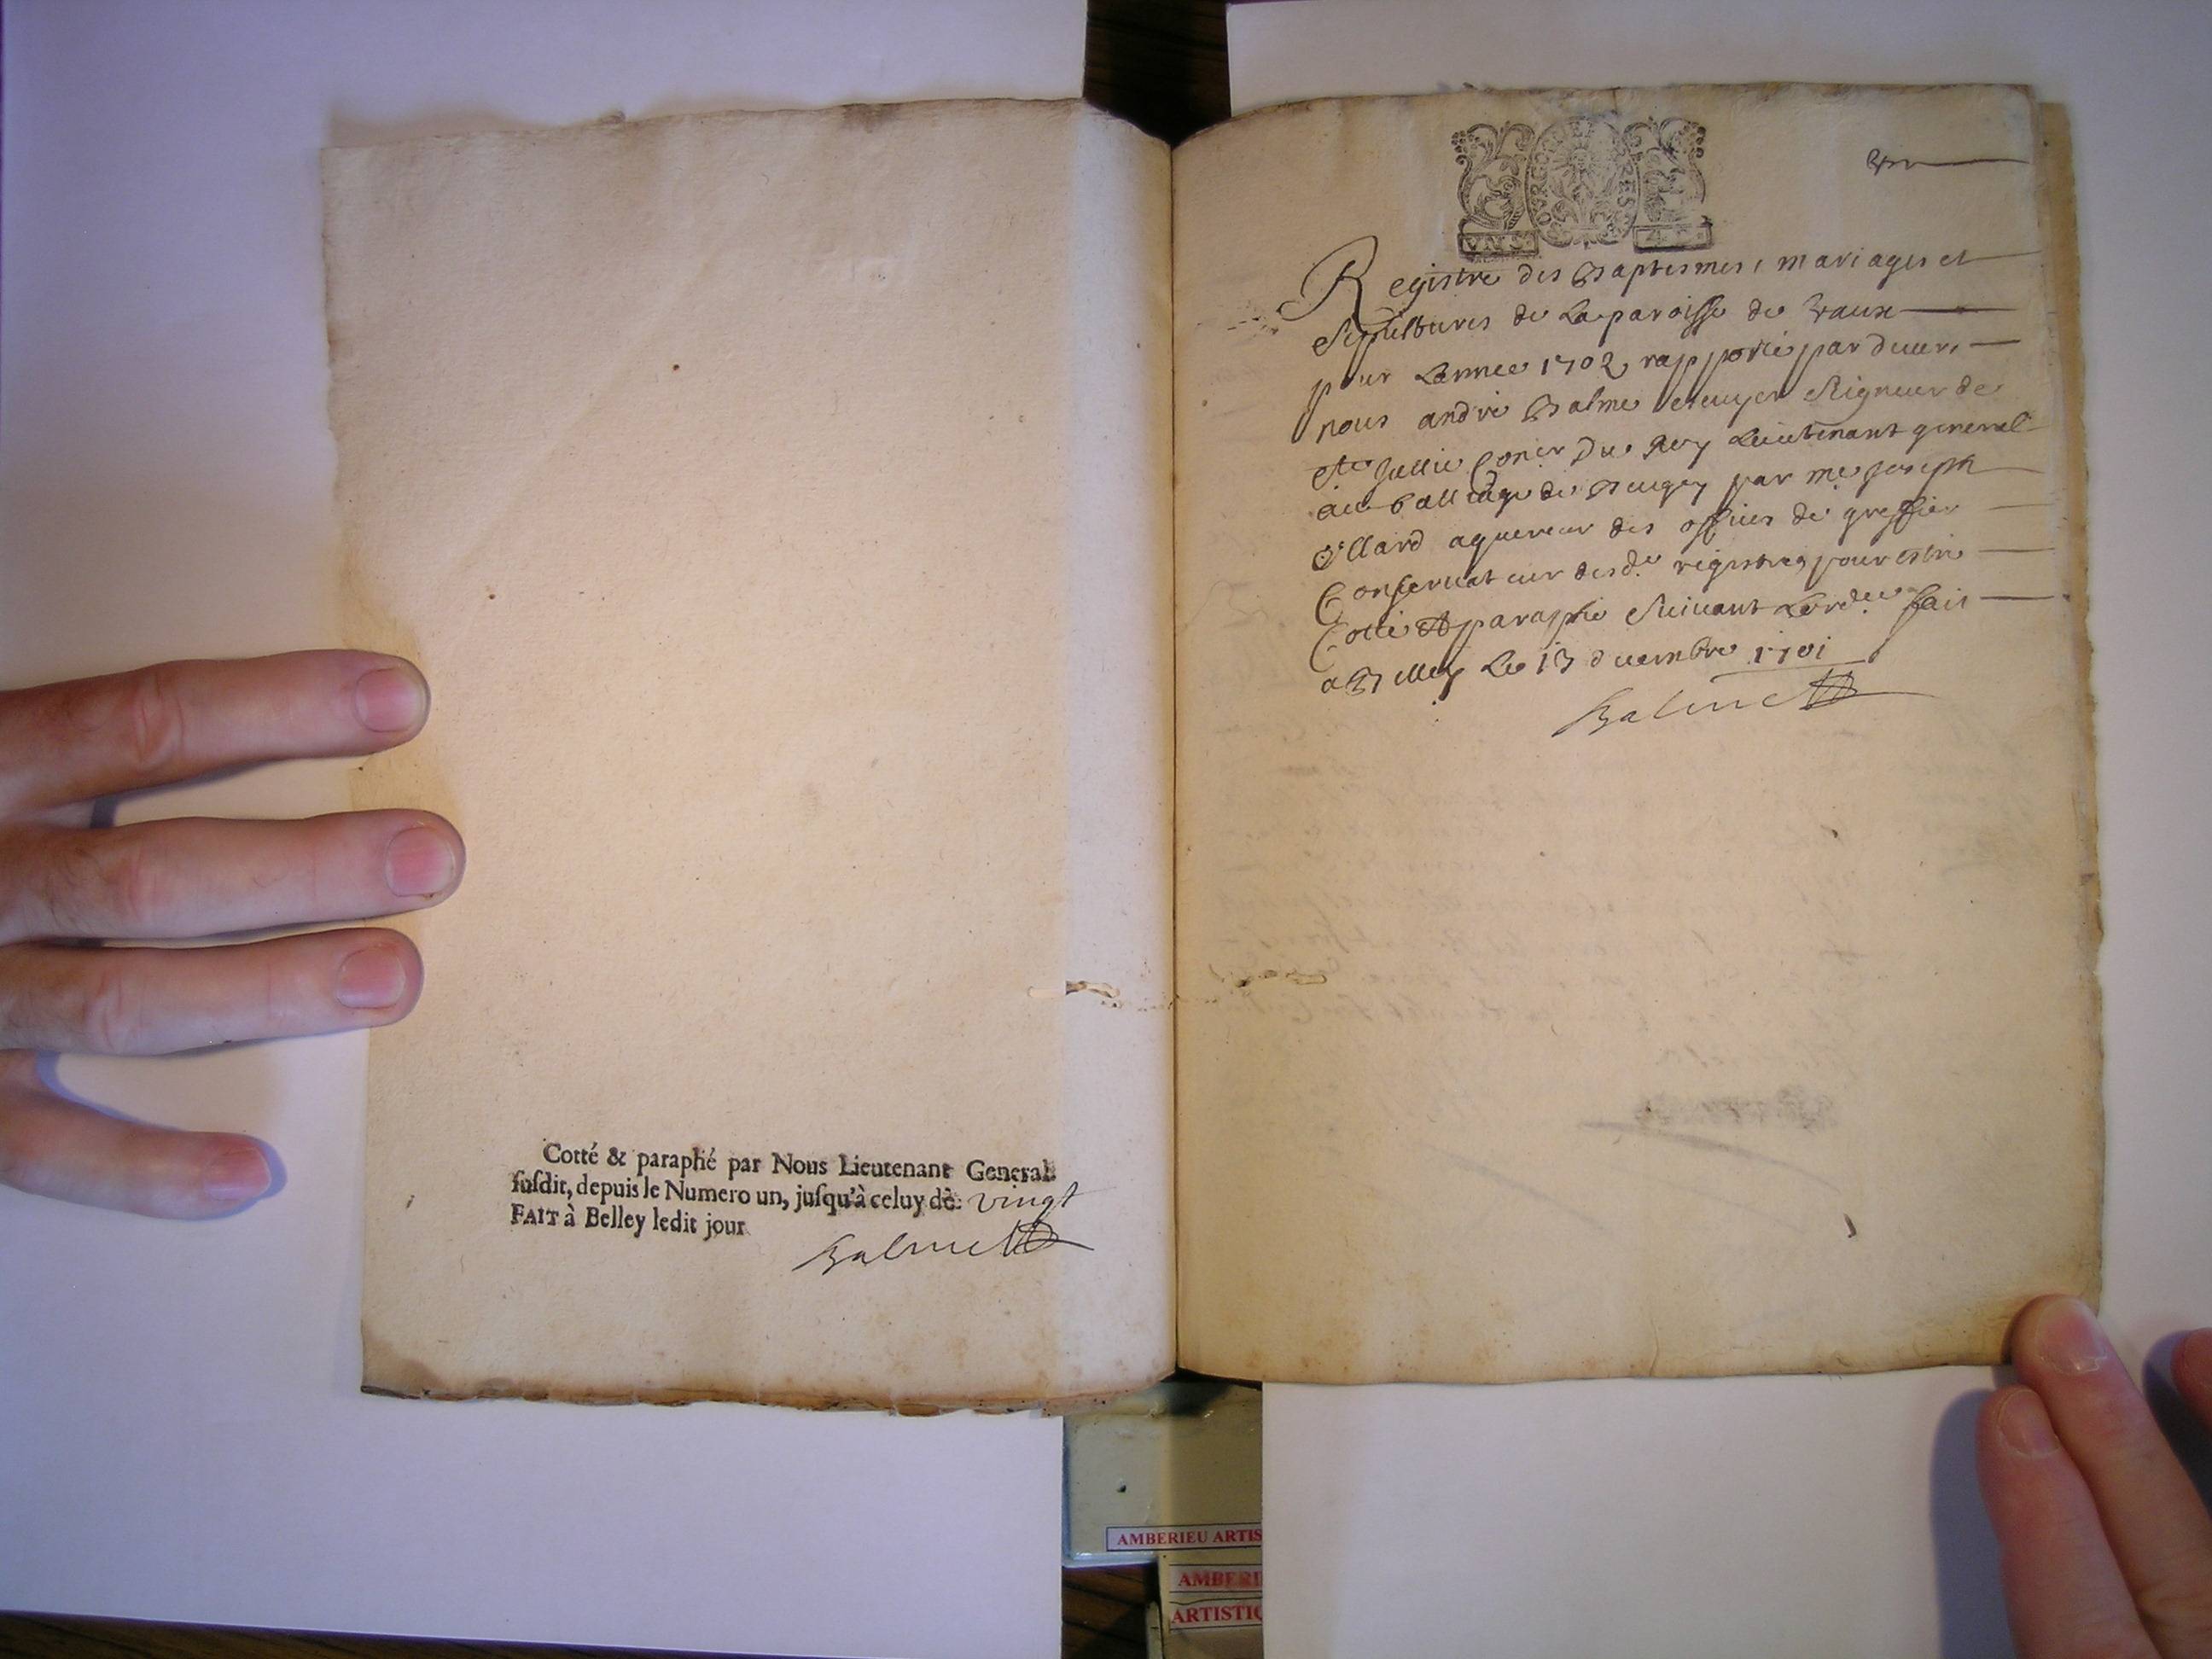 Cotté & paraphé par Nous Lieutenant General
susdit, depuis le Numero un, jusqu'à celuy de vingt
FAIT à Belley ledit jour
Balme
BOVRGOGNE BRESSE
Registre des Baptesmes, mariages et
Sepultures de La paroisse de Vaux
pour Lannee 1702, rapporté par devers
nous andré Balme escuyer Seigneur de
Ste Jullie Coner Du Roy Lieutenant general
au balliage de Beugey par me Joseph
Billard aquereur des offices de greffier
Conservateur desd. registres pour estre
Cotté et paraphé Suivant Lordce fait
a Belley Le 13 decembre 1701
Balme
AMBERIEU ARTIS
AMBERI
ARTISTIQ